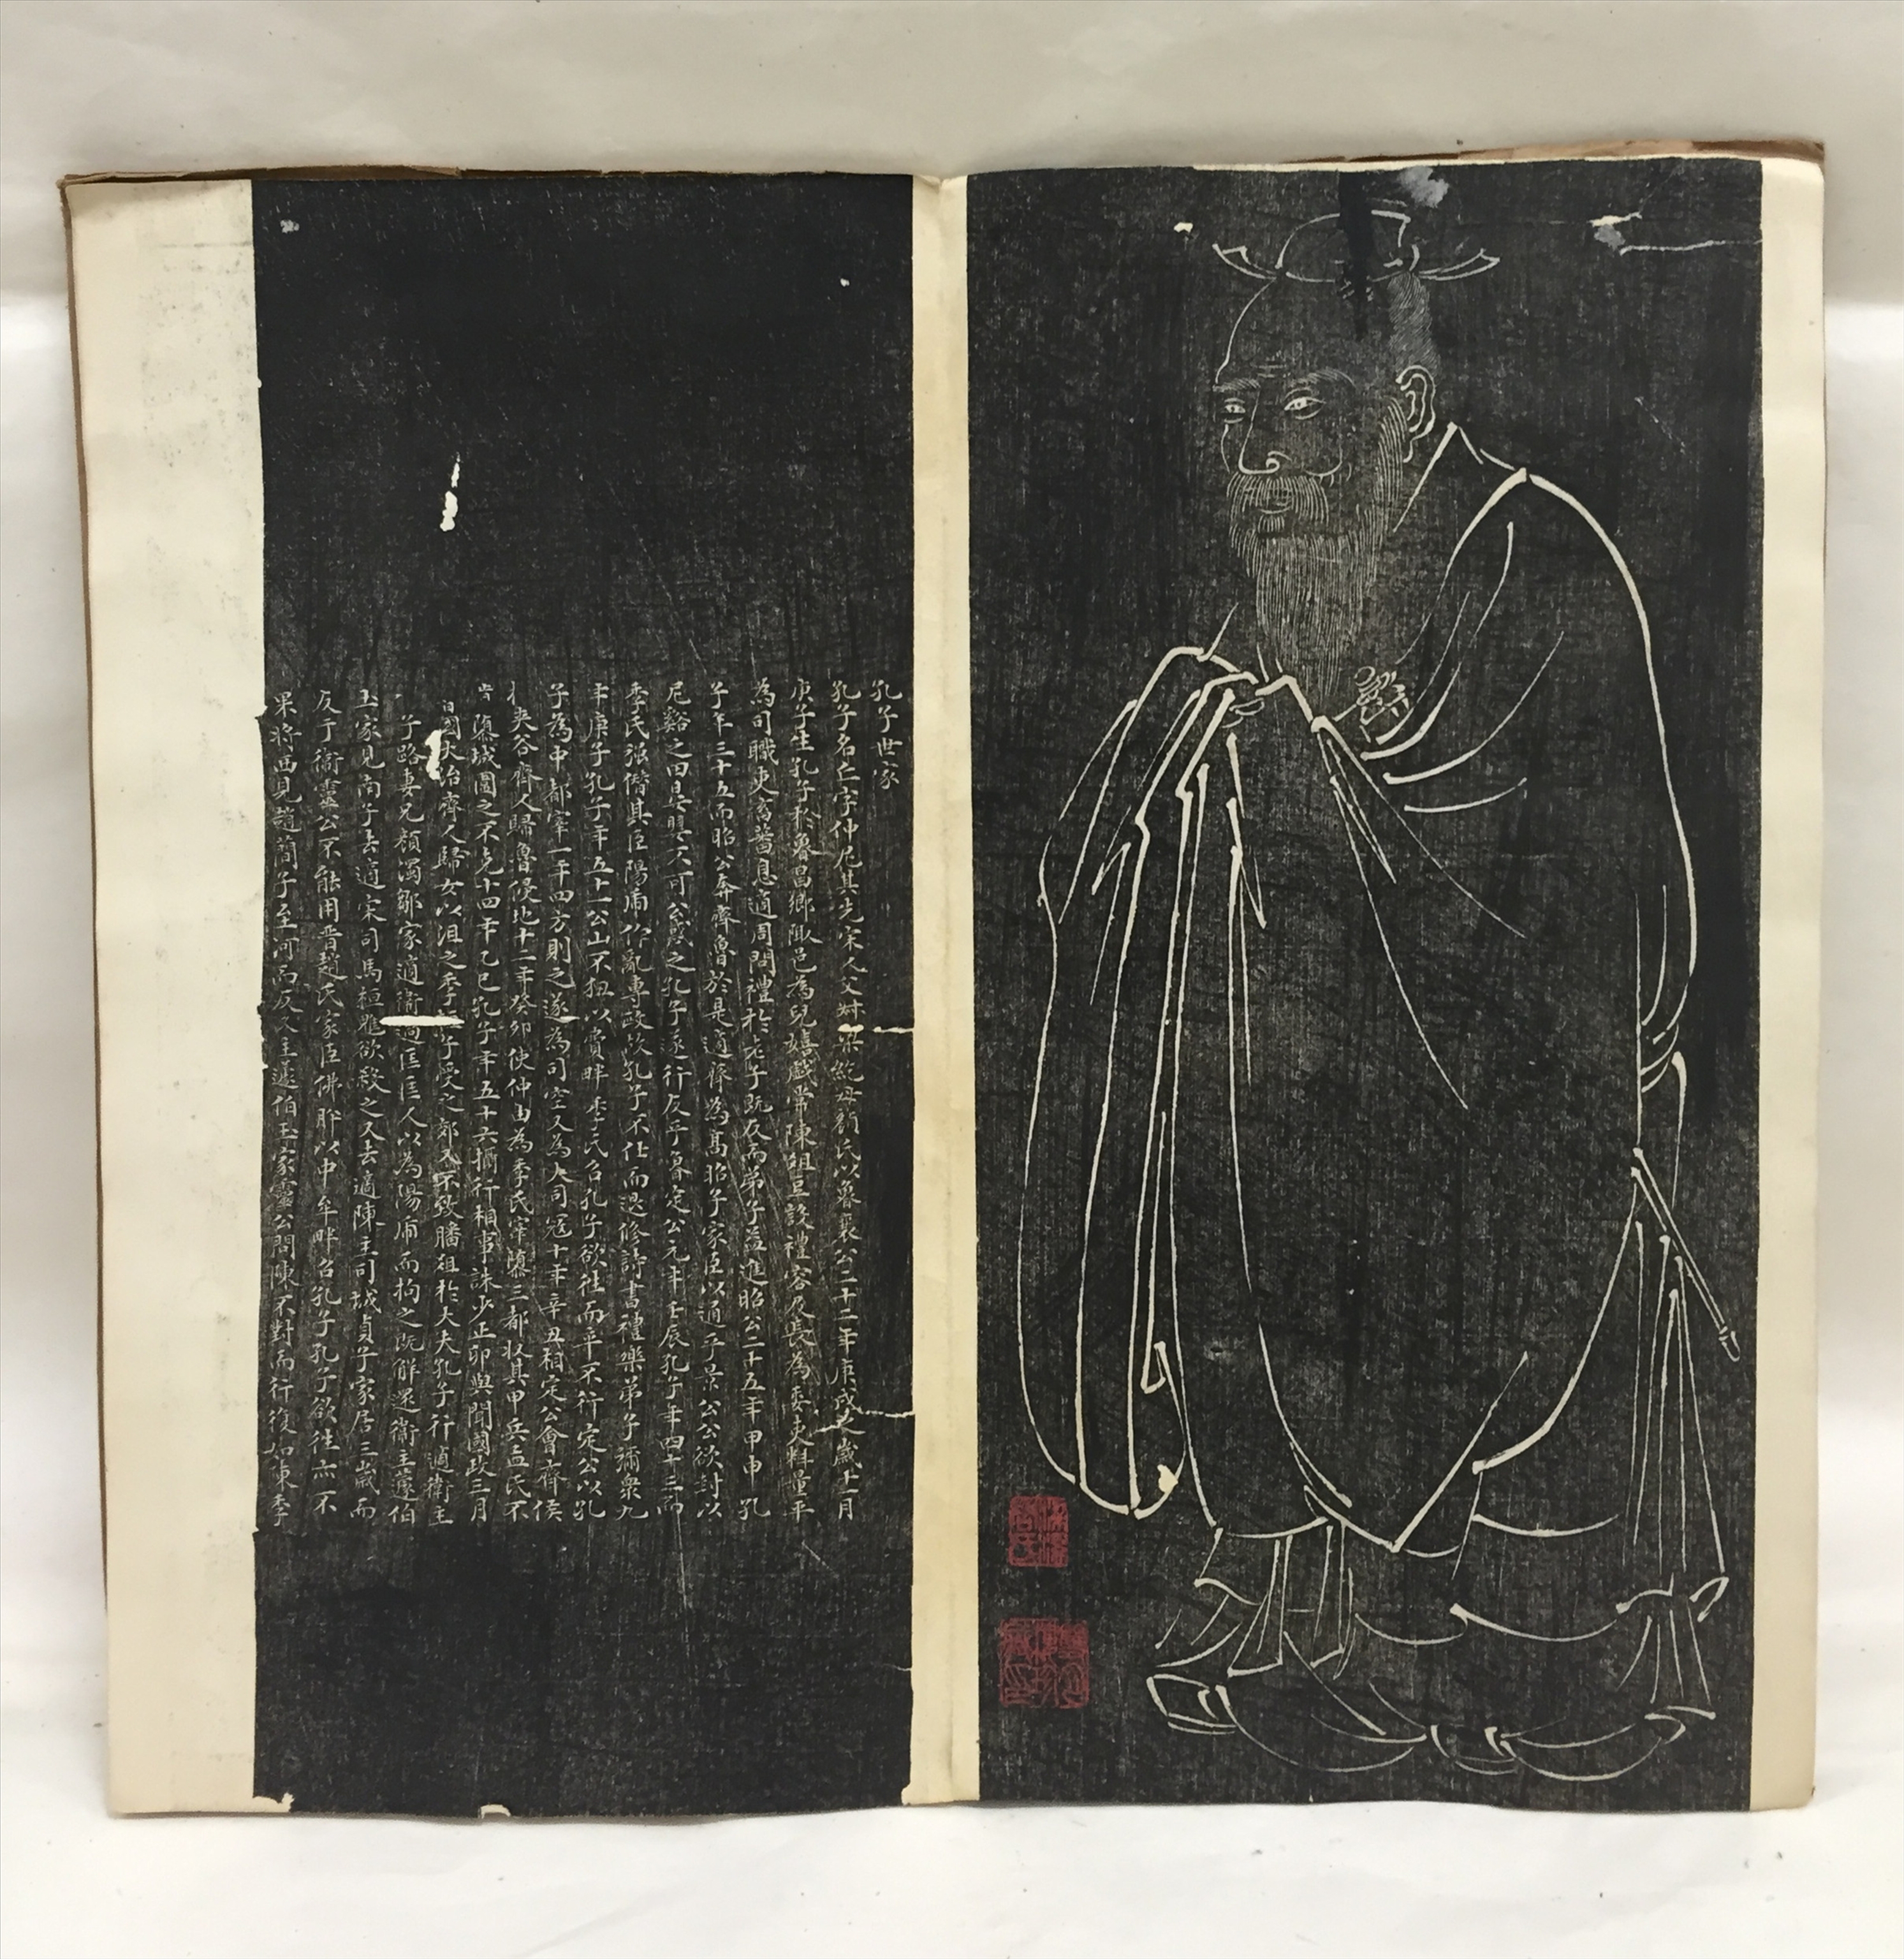 孔子世家
孔子名丘字仲尼其先宋人父叔梁紇母顏氏以魯襄公二十二年庚戌之歲十一月
庚子生孔子於魯昌鄉陬邑為兒嬉戲常陳俎豆設禮容及長為委吏料量平
為司職吏畜蕃息適周問禮於老子既反而弟子益進昭公二十五年甲申孔
子年三十五而昭公奔齊魯於是適齊為高昭子家臣以通乎景公公欲封以
尼谿之田晏嬰不可公惑之孔子遂行反乎魯定公元年壬辰孔子年四十三而
季氏強僭其臣陽虎作亂專政故孔子不仕而退修詩書禮樂弟子彌衆九
年庚子孔子年五十一公山不狃以費畔季氏召孔子欲往而卒不行定公以孔
子為中都宰一年四方則之遂為司空又為大司寇十年辛丑相定公會齊侯
夾谷齊人歸魯侵地十二年癸卯使仲由為季氏宰墮三都收其甲兵孟氏不
肯墮城圍之不克十四年乙巳孔子年五十六攝行相事誅少正卯與聞國政三月
國大治齊人歸女以沮之季子受之郊又不致膰俎於大夫孔子行適衛主
子路妻兄顏濁鄒家適衛過匡匡人以為陽虎而拘之既解還衛主蘧伯
玉家見南子去適宋司馬桓魋欲殺之又去適陳主司城貞子家居三歲而
反于衛靈公不能用晉趙氏家臣佛肸以中牟畔召孔子孔子欲往亦不
果將西見趙簡子至河而反又主蘧伯玉家靈公問陳不對而行復如陳季